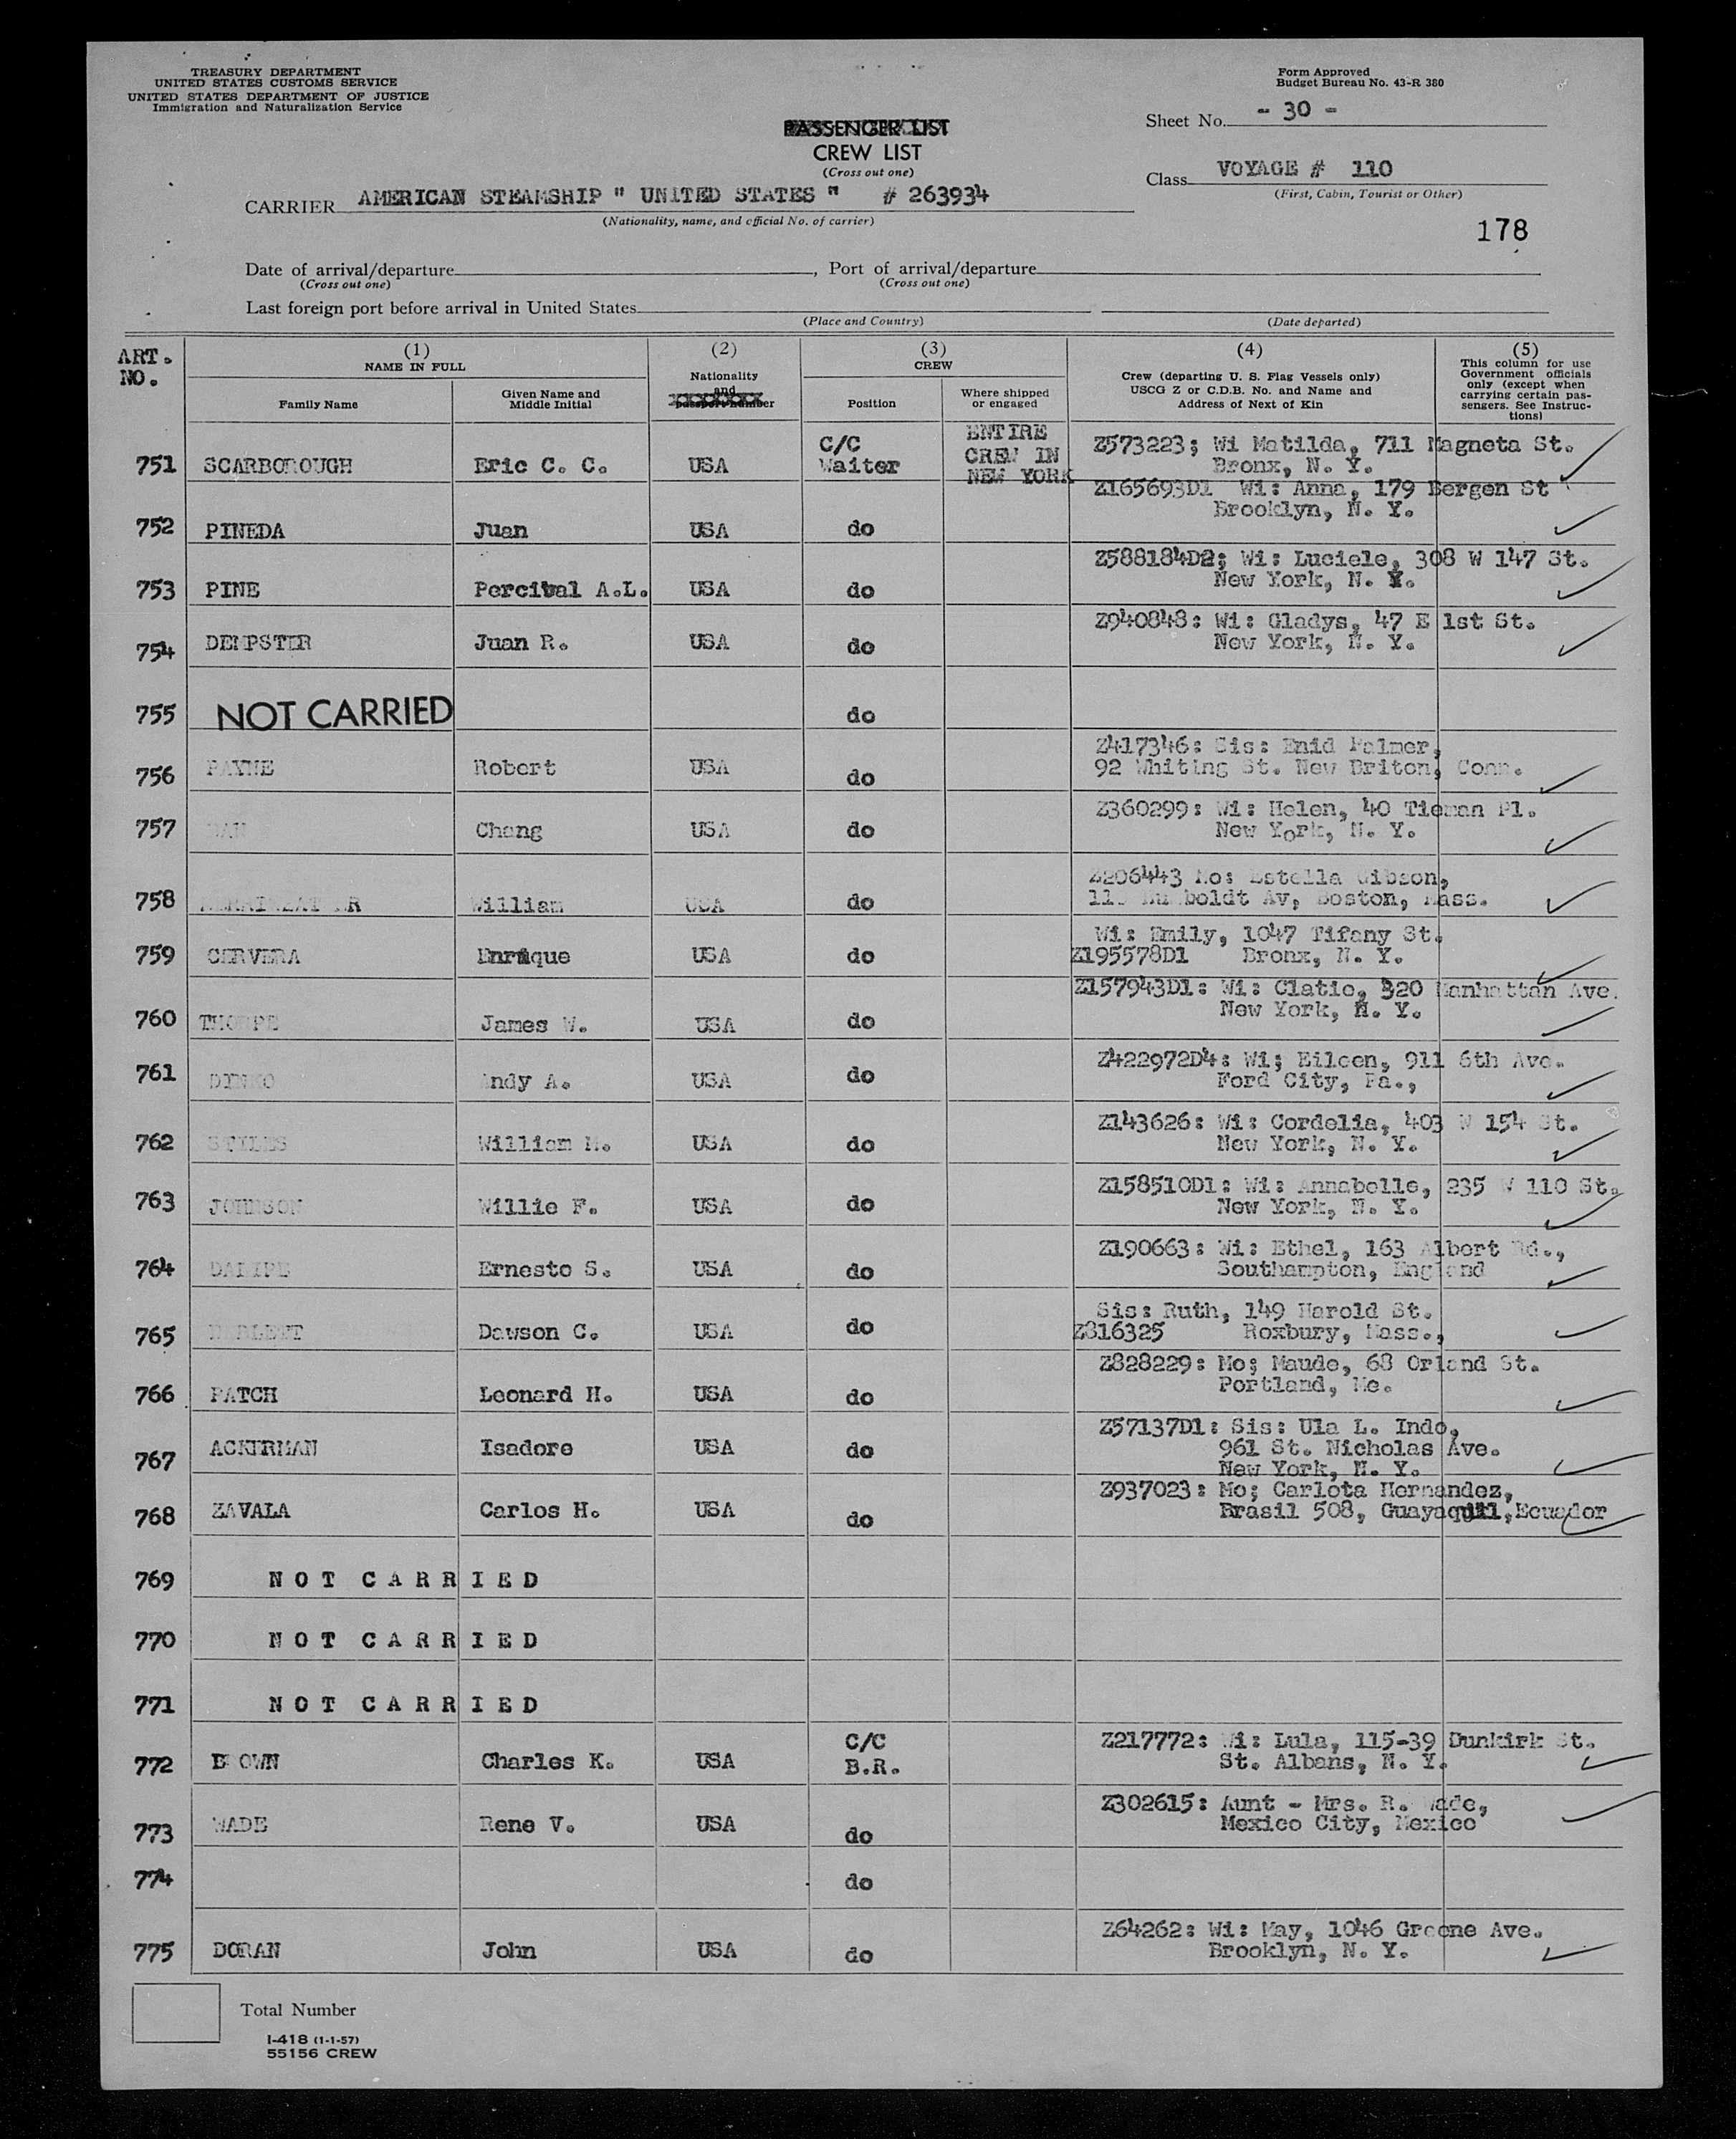 TREASURY DEPARTMENT
UNITED STATES CUSTOMS SERVICE
UNITED STATES DEPARTMENT OF JUSTICE
Immigration and Naturalization Service
Form Approved
Budget Bureau No. 43-R 380
Sheet No. - 30 -
PASSENGER LIST
CREW LIST
(Cross out one)
Class VOYAGE # 110
(First, Cabin, Tourist or Other)
CARRIER AMERICAN STEAMSHIP " UNITED STATES " # 263934
(Nationality, name, and official No. of carrier)
178
Date of arrival/departure , Port of arrival/departure
(Cross out one) (Cross out one)
Last foreign port before arrival in United States
(Place and Country) (Date departed)
ART. NO.
(1) NAME IN FULL
Family Name
Given Name and Middle Initial
(2)
Nationality and passport number
(3)
CREW
Position
Where shipped or engaged
(4)
Crew (departing U. S. Flag Vessels only)
USCG Z or C.D.B. No. and Name and
Address of Next of Kin
(5)
This column for use
Government officials
only (except when
carrying certain pas-
sengers. See Instruc-
tions)
751 SCARBOROUGH Eric C. C. USA C/C Waiter ENTIRE CREW IN NEW YORK Z573223; Wi Matilda, 711 Magneta St.
Bronx, N. Y.
752 PINEDA Juan USA do Z165693D1 Wi: Anna, 179 Bergen St
Brooklyn, N. Y.
753 PINE Percival A.L. USA do Z588184D2; Wi: Luciele, 308 W 147 St.
New York, N. Y.
754 DEMPSTER Juan R. USA do Z940848: Wi: Gladys, 47 E 1st St.
New York, N. Y.
755 NOT CARRIED do
756 PAYNE Robert USA do Z417346: Sis: Enid Palmer,
92 Whiting St. New Briton, Conn.
757 Chang USA do Z360299: Wi: Helen, 40 Tieman Pl.
New York, N. Y.
758 William USA do Z206443 Mo: Estella Gibson,
Humboldt Av, Boston, Mass.
759 CERVERA Enrique USA do Wi: Emily, 1047 Tifany St.
Z195578D1 Bronx, N. Y.
760 THORPE James W. USA do Z157943D1: Wi: Clatie, 320 Manhattan Ave.
New York, N. Y.
761 DINKO Andy A. USA do Z422972D4: Wi; Eileen, 911 6th Ave.
Ford City, Pa.,
762 STILES William M. USA do Z143626: Wi: Cordelia, 403 W 154 St.
New York, N. Y.
763 JOHNSON Willie F. USA do Z158510D1: Wi: Annabelle, 235 W 110 St.
New York, N. Y.
764 Ernesto S. USA do Z190663: Wi: Ethel, 163 Albert Rd.,
Southampton, England
765 Dawson C. USA do Sis: Ruth, 149 Harold St.
Z816325 Roxbury, Mass.,
766 PATCH Leonard H. USA do Z828229: Mo; Maude, 68 Orland St.
Portland, Me.
767 ACKERMAN Isadore USA do Z57137D1: Sis: Ula L. Indo,
961 St. Nicholas Ave.
New York, N. Y.
768 ZAVALA Carlos H. USA do Z937023: Mo; Carlota Hernandez,
Brasil 508, Guayaquil, Ecuador
769 NOT CARRIED
770 NOT CARRIED
771 NOT CARRIED
772 BROWN Charles K. USA C/C B.R. Z217772: Wi: Lula, 115-39 Dunkirk St.
St. Albans, N. Y.
773 WADE Rene V. USA do Z302615: Aunt - Mrs. R. Wade,
Mexico City, Mexico
774 do
775 DORAN John USA do Z64262: Wi: May, 1046 Greene Ave.
Brooklyn, N. Y.
Total Number
I-418 (1-1-57)
55156 CREW